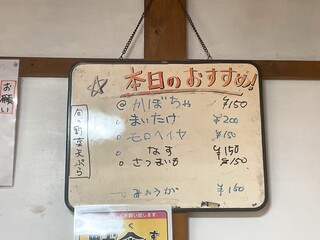 ☆本日のおすすめ!
旬の野菜天ぷら
@かぼちゃ ¥150
。まいたけ ¥200
。モロヘイヤ ¥150
。なす ¥150
。さつまいも ¥150
みょうが ¥160
お願い